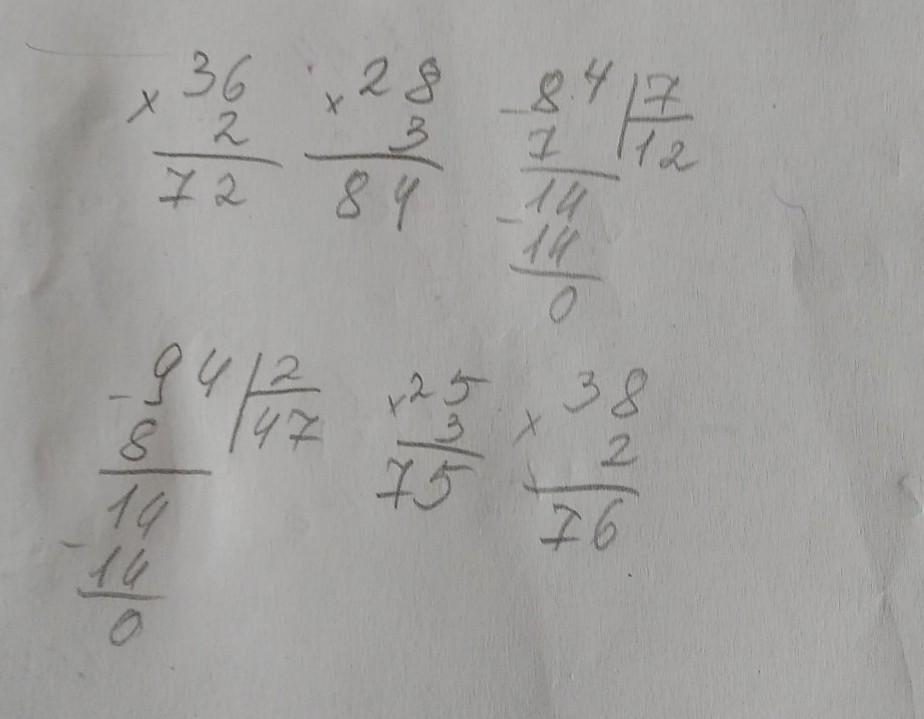 × 36 × 28 - 84 | 7
2 3 7 12
72 84 14
- 14
0
- 94 | 2 × 25 × 38
8 47 3 2
14 75 76
- 14
0